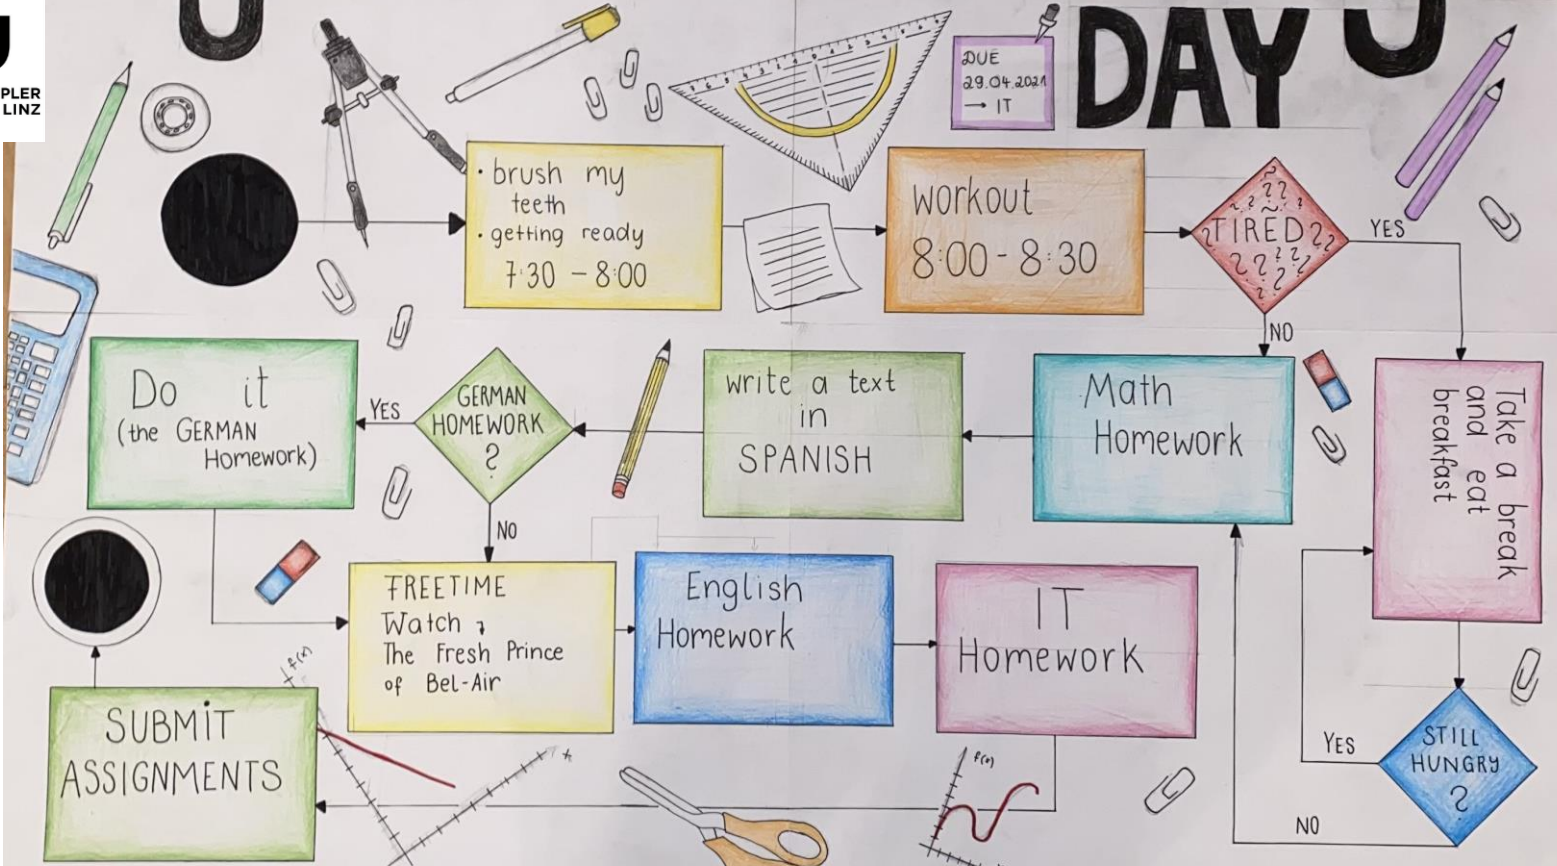 PLER
LINZ
DUE
29.04.2021
→ IT
DAY
• brush my
teeth
• getting ready
7:30 – 8:00
workout
8:00 - 8:30
TIRED
YES
NO
Take a break
and eat
breakfast
STILL
HUNGRY
?
YES
NO
Math
Homework
write a text
in
SPANISH
GERMAN
HOMEWORK
?
YES
NO
Do it
(the GERMAN
Homework)
FREETIME
Watch
The Fresh Prince
of Bel-Air
English
Homework
IT
Homework
SUBMiT
ASSIGNMENTS
f(x)
x
f(x)